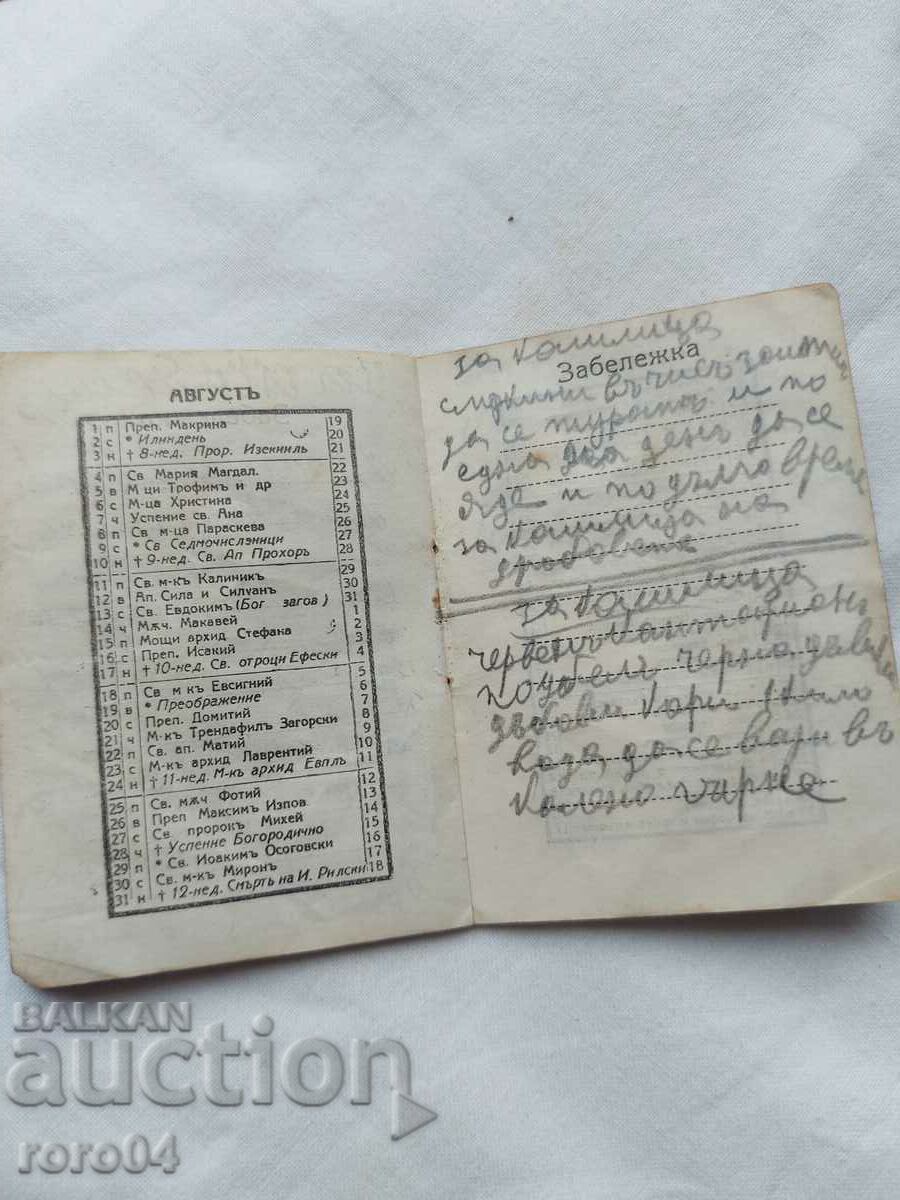 АВГУСТЪ
1 п Преп. Макрина 19
2 с * Илиндень 20
3 н † 8-нед. Прор. Изекииль 21
4 п Св Мария Магдал. 22
5 в М ци Трофимъ и др 23
6 с М-ца Христина 24
7 ч Успение св. Ана 25
8 п Св м-ца Параскева 26
9 с * Св Седмочисленици 27
10 н † 9-нед. Св. Ап Прохоръ 28
11 п Св. м-къ Калиникъ 29
12 в Ап. Сила и Силуанъ 30
13 с Св. Евдокимъ (Бог загов) 31
14 ч Мѫч. Макавей 1
15 п Мощи архид Стефана 2
16 с Преп. Исакий 3
17 н † 10-нед. Св. отроци Ефески 4
18 п Св м къ Евсигний 5
19 в * Преображение 6
20 с Преп. Домитий 7
21 ч М-къ Трендафилъ Загорски 8
22 п Св. ап. Матий 9
23 с М-къ архид Лаврентий 10
24 н † 11-нед. М-къ архид Евплъ 11
25 п Св. мѫч Фотий 12
26 в Преп Максимъ Изпов. 13
27 с Св пророкъ Михей 14
28 ч † Успение Богородично 15
29 п * Св. Иоакимъ Осоговски 16
30 с Св. м-къ Миронъ 17
31 н † 12-нед. Смърть на И. Рилски 18
за кашлица
Забележка
въ чисъ
да се турятъ и по
една два день да се
яде и по дълго време
за кашлица на
дробовете
за кашлица
червенъ кантарионъ
черна
дъбови кори 1 кило
коза да се вари въ
калено гърне
BALKAN
auction
roro04